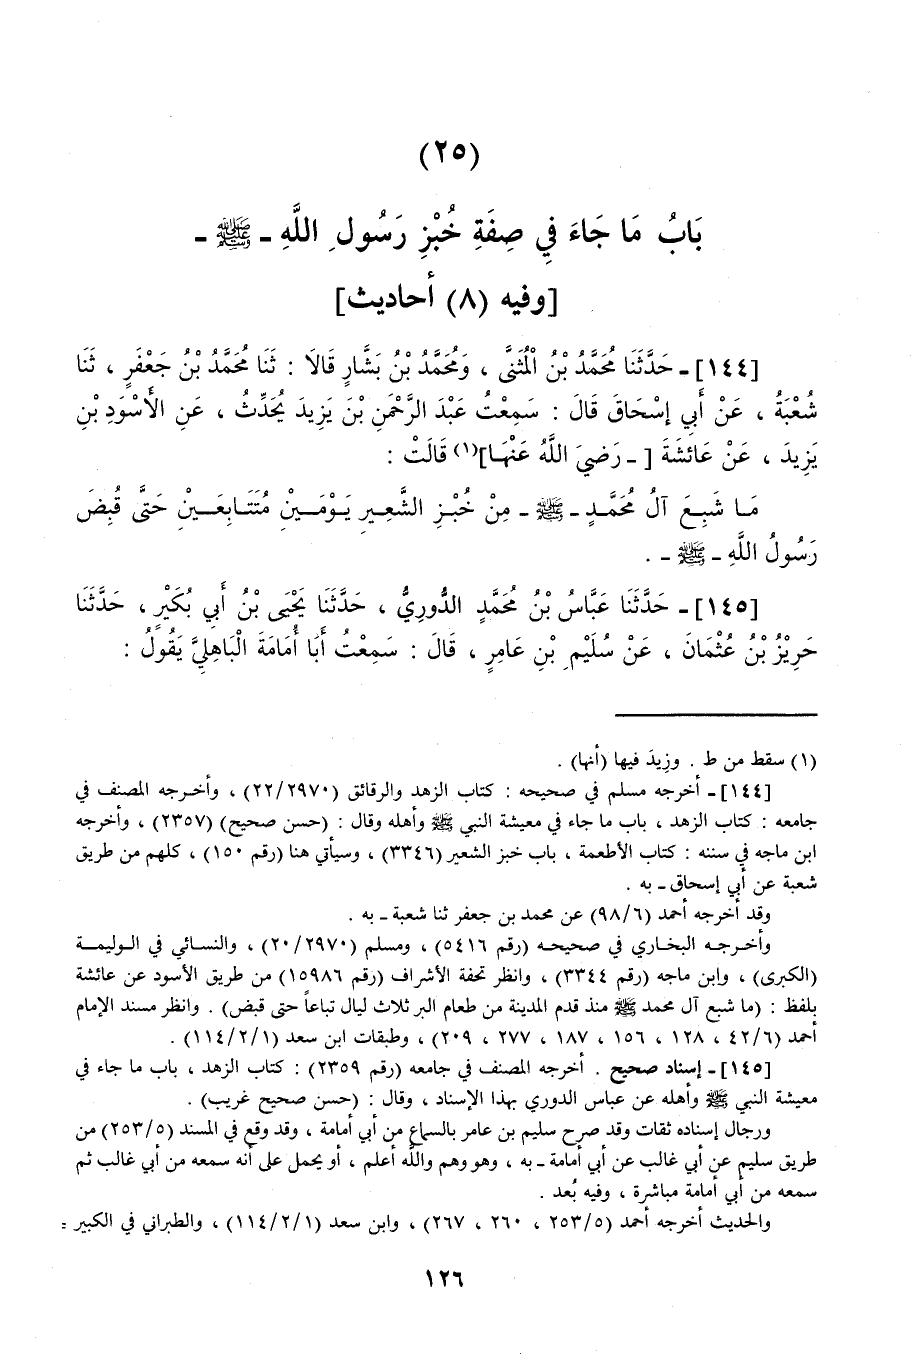 (٢٥)
بَابُ مَا جَاءَ فِي صِفَةِ خُبْزِ رَسُولِ اللَّهِ - ﷺ -
[وفيه (٨) أحاديث]
[١٤٤] - حَدَّثَنَا مُحَمَّدُ بْنُ الْمُثَنَّى ، وَمُحَمَّدُ بْنُ بَشَّارٍ قَالَا : ثَنَا مُحَمَّدُ بْنُ جَعْفَرٍ ، ثَنَا
شُعْبَةُ ، عَنْ أَبِي إِسْحَاقَ قَالَ : سَمِعْتُ عَبْدَ الرَّحْمَنِ بْنَ يَزِيدَ يُحَدِّثُ ، عَنِ الأَسْوَدِ بْنِ
يَزِيدَ ، عَنْ عَائِشَةَ [ - رَضِيَ اللَّهُ عَنْهَا](١) قَالَتْ :
مَا شَبِعَ آلُ مُحَمَّدٍ - ﷺ - مِنْ خُبْزِ الشَّعِيرِ يَوْمَيْنِ مُتَتَابِعَيْنِ حَتَّى قُبِضَ
رَسُولُ اللَّهِ - ﷺ - .
[١٤٥] - حَدَّثَنَا عَبَّاسُ بْنُ مُحَمَّدٍ الدُّورِيُّ ، حَدَّثَنَا يَحْيَى بْنُ أَبِي بُكَيْرٍ ، حَدَّثَنَا
حَرِيْزُ بْنُ عُثْمَانَ ، عَنْ سُلَيْمِ بْنِ عَامِرٍ ، قَالَ : سَمِعْتُ أَبَا أُمَامَةَ الْبَاهِلِيَّ يَقُولُ :
(١) سقط من ط . وزِيدَ فيها (أنها) .
[١٤٤] - أخرجه مسلم في صحيحه : كتاب الزهد والرقائق (٢٢/٢٩٧٠) ، وأخرجه المصنف في
جامعه : كتاب الزهد ، باب ما جاء في معيشة النبي ﷺ وأهله وقال : (حسن صحيح) (٢٣٥٧) ، وأخرجه
ابن ماجه في سننه : كتاب الأطعمة ، باب خبز الشعير (٣٣٤٦) ، وسيأتي هنا (رقم ١٥٠) ، كلهم من طريق
شعبة عن أبي إسحاق - به .
وقد أخرجه أحمد (٩٨/٦) عن محمد بن جعفر ثنا شعبة - به .
وأخرجه البخاري في صحيحه (رقم ٥٤١٦) ، ومسلم (٢٠/٢٩٧٠) ، والنسائي في الوليمة
(الكبرى) ، وابن ماجه (رقم ٣٣٤٤) ، وانظر تحفة الأشراف (رقم ١٥٩٨٦) من طريق الأسود عن عائشة
بلفظ : (ما شبع آل محمد ﷺ منذ قدم المدينة من طعام البر ثلاث ليال تباعاً حتى قبض) . وانظر مسند الإمام
أحمد (٤٢/٦ ، ١٢٨ ، ١٥٦ ، ١٨٧ ، ٢٧٧ ، ٢٠٩) ، وطبقات ابن سعد (١١٤/٢/١) .
[١٤٥] - إسناد صحيح . أخرجه المصنف في جامعه (رقم ٢٣٥٩) : كتاب الزهد ، باب ما جاء في
معيشة النبي ﷺ وأهله عن عباس الدوري بهذا الإسناد ، وقال : (حسن صحيح غريب) .
ورجال إسناده ثقات وقد صرح سليم بن عامر بالسماع من أبي أمامة ، وقد وقع في المسند (٢٥٣/٥) من
طريق سليم عن أبي غالب عن أبي أمامة - به ، وهو وهم والله أعلم ، أو يحمل على أنه سمعه من أبي غالب ثم
سمعه من أبي أمامة مباشرة ، وفيه بُعد .
والحديث أخرجه أحمد (٢٥٣/٥ ، ٢٦٠ ، ٢٦٧) ، وابن سعد (١١٤/٢/١) ، والطبراني في الكبير =
١٢٦